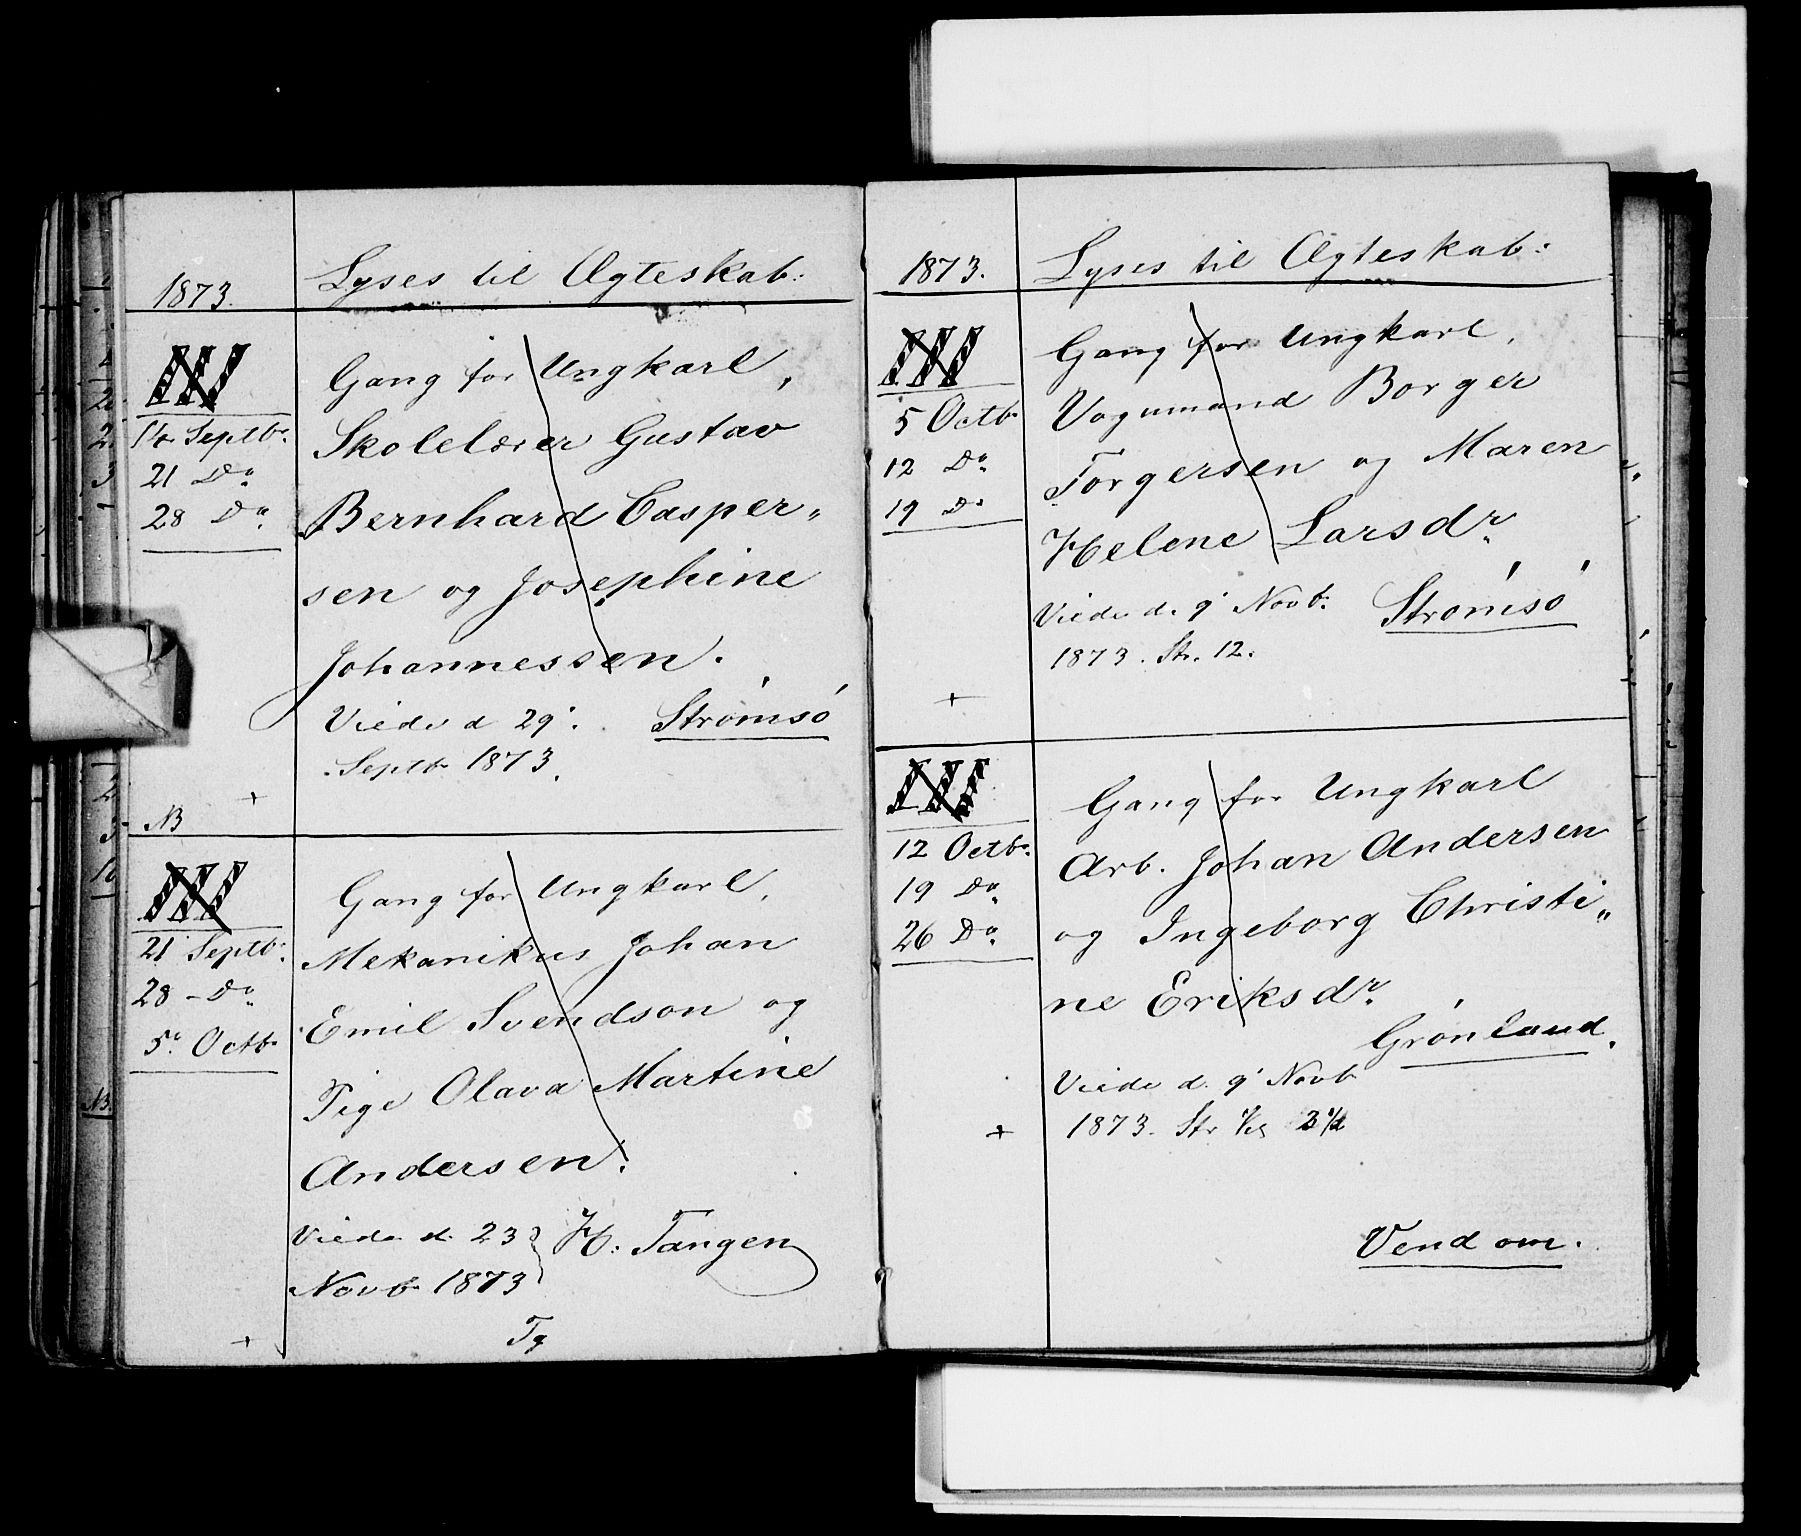 1873.
Lyses til Ægteskab:
III
14 Septbr.
21 Do
28 Do
Gang for Ungkarl,
Skolelærer Gustav
Bernhard Casper„
sen og Josephine
Johannessen.
Viede d 29'.
Septbr 1873.
Strømsö
+
NB
III
21 Septbr.
28 – Do
5' Octbr
Gang for Ungkarl,
Mekanikus Johan
Emil Svendson og
Pige Olava Martine
Andersen.
Viede d. 23
Novbr 1873
H. Tangen
+
Tg
1873.
Lyses til Ægteskab:
III
5 Octbr
12 Do
19 Do
Gang for Ungkarl,
Vognmand Borger
Torgersen og Maren
Helene Larsdr.
Viede d. 9' Novbr.
1873. Str. 12.
Strömsö
+
III
12 Octbr.
19 Do
26 Do
Gang for Ungkarl
Arb. Johan Andersen
og Ingeborg Christi„
ne Eriksdr.
Grönland.
Viede d. 9' Novb
1873. Str
+
Vend om.